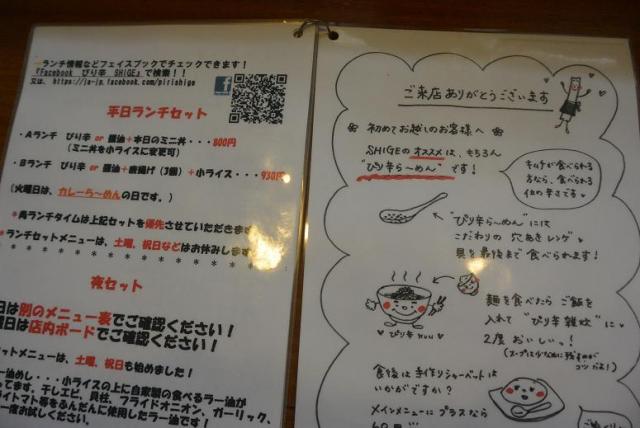 ランチ情報などフェイスブックでチェックできます!
『Facebook ぴり辛 SHiGE』で検索!!
又は、https://ja-jp.facebook.com/pirishige
平日ランチセット
・Aランチ ぴり辛 or 醤油+本日のミニ丼・・・800円
(ミニ丼を小ライスに変更可)
・Bランチ ぴり辛 or 醤油+唐揚げ(3個)+小ライス・・・930円
(火曜日は、カレーら〜めんの日です。)
*両ランチタイムは上記セットを優先させていただきます
*ランチセットメニューは、土曜、祝日などはお休みします
* * * * * * * * * * * * * * * * *
夜セット
日は別のメニュー表でご確認ください!
曜日は店内ボードでご確認ください!
ットメニューは、土曜、祝日も始めました!
ー油めし・・・小ライスの上に自家製の食べるラー油が
ってます。干しエビ、貝柱、フライドオニオン、ガーリック、
ライトマト等をふんだんに使用したラー油です!
一度お試しください。
ご来店ありがとうございます
初めてお越しのお客様へ
SHIGEのオススメは、もちろん
"ぴり辛ら〜めん"です!
キムチが食べられる
方なら、食べられる
位の辛さです
"ぴり辛ら〜めん"には
こだわりの穴あきレンゲ
具を最後まで食べられます!
ぴり辛
麺を食べたら ご飯を
入れて "ぴり辛雑炊"に
2度おいしい!
(スープは少なめに残すのが
コツだよ!)
食後は手作りシャーベットは
いかがですか?
メインメニューにプラスなら